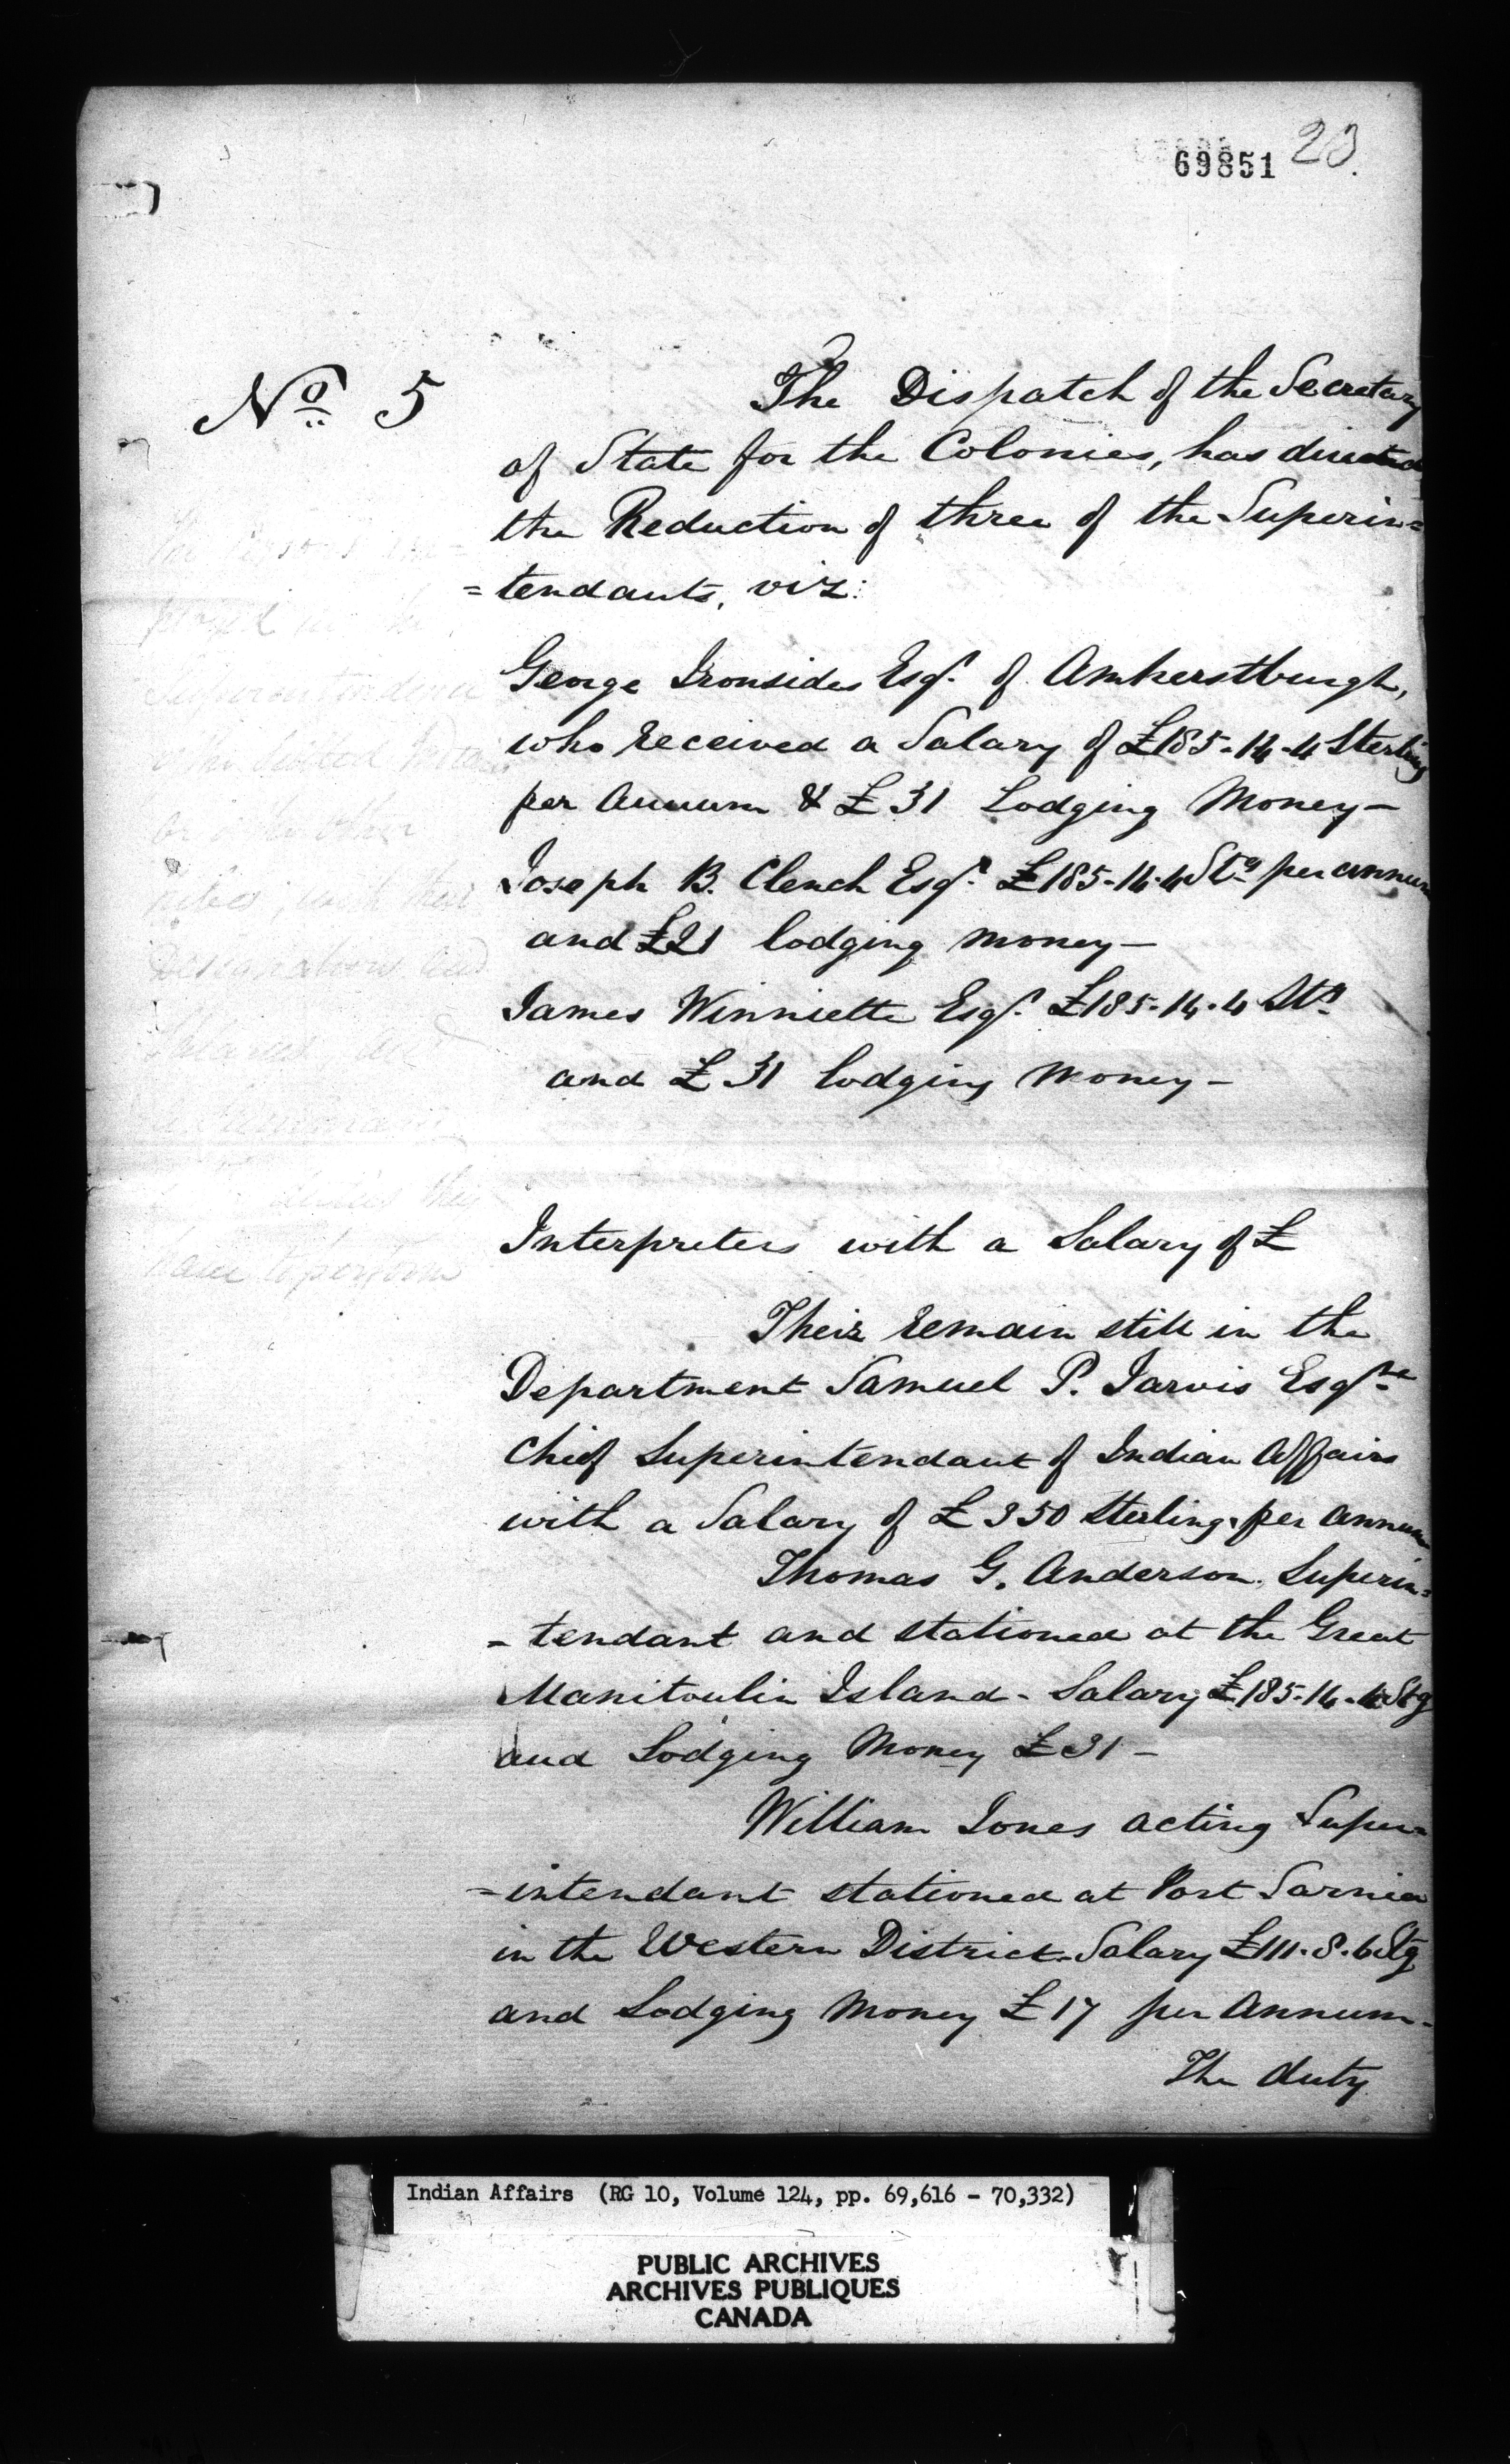 69851 23.
No 5
The Dispatch of the Secretary
of State for the Colonies, has directed
the Reduction of three of the Superin=
=tendants, viz:
George Ironsides Esqr. of Amherstburgh,
who received a Salary of £185-14-4 Sterling
per Annum & £31 Lodging Money—
Joseph B. Clench Esqr. £185-14-4 Stg per annum
and £21 lodging money—
James Winniette Esqr. £185-14-4 Stg
and £31 lodging money—
Interpreters with a Salary of £
Their remain still in the
Department Samuel P. Jarvis Esqre
Chief Superintendant of Indian Affairs
with a Salary of £350 Sterling per annum
Thomas G. Anderson Superin=
=tendant and stationed at the Great
Manitoulin Island - Salary £185-14-4 Stg
and Lodging Money £31—
William Jones acting Super=
=intendant stationed at Port Sarnia
in the Western District - Salary £111.8.6 Stg
and Lodging Money £17 per Annum-
The duty
Superintendence
with their
duties they
have to perform
Indian Affairs (RG 10, Volume 124, pp. 69,616 - 70,332)
PUBLIC ARCHIVES
ARCHIVES PUBLIQUES
CANADA